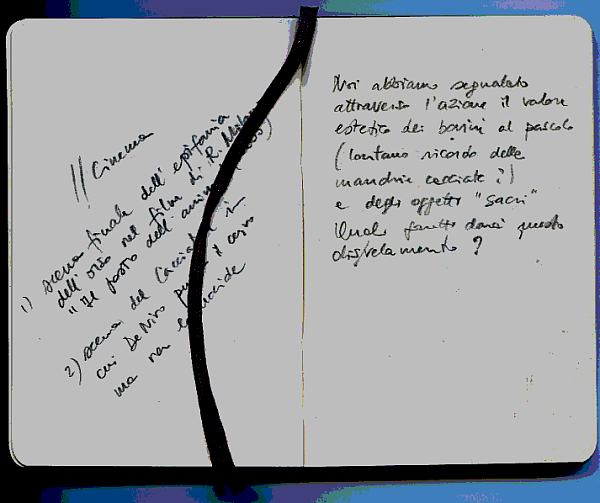 // Cinema
1) scena finale dell'epifania
dell'orso nel film di R.
"Il posto dell'anima
2) scena del Cacciatore in
cui De Niro il cervo
ma non uccide
Noi abbiamo segnalato
attraverso l'azione il valore
estetico dei bovini al pascolo
(lontano ricordo delle
mandrie cacciate?)
e degli oggetti "sacri"
Quali frutti darà questo
disvelamento?